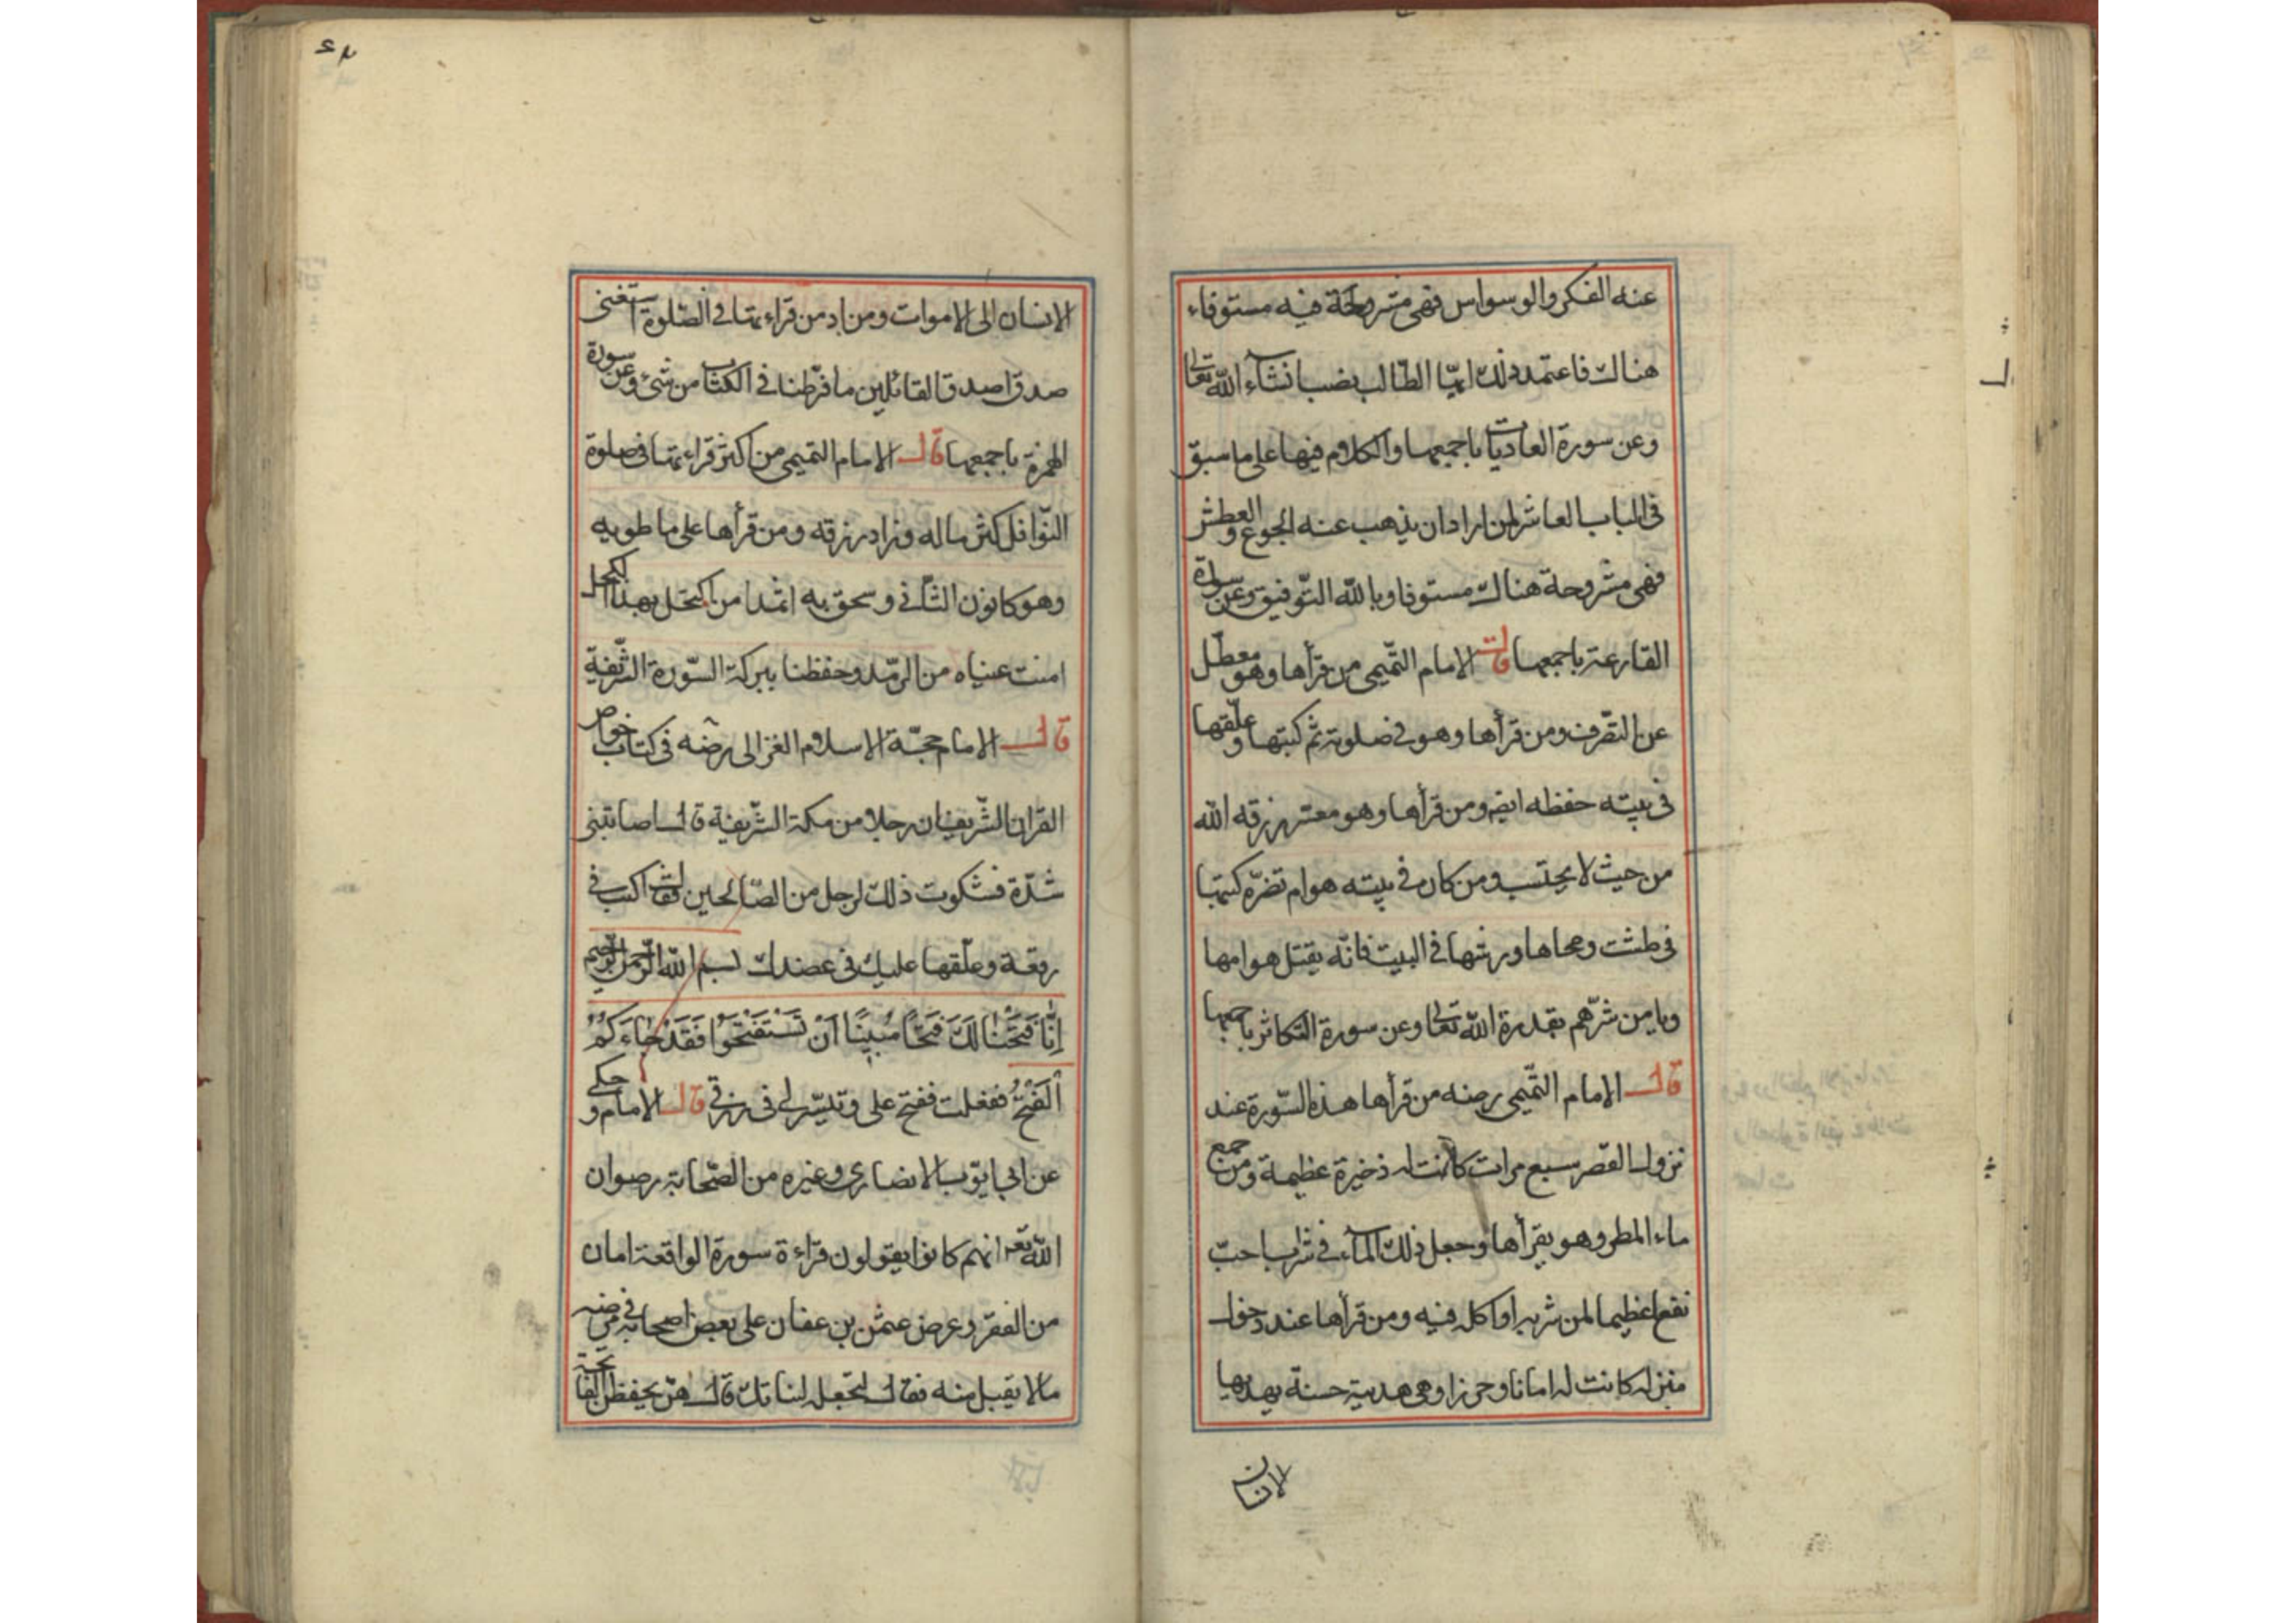 عنه الفكر والوسواس فهى مشروحة فيه مستوفاء
هناك فاعتمد ذلك ايّها الطّالب نصب انشآء اللّه تعالى
وعن سورة العاديات باجمعها والكلام فيها على ما سبق
فى الباب العاشر لمن اراد ان يذهب عنه الجوع والعطش
فهى مشروحة هناك مستوفا وباللّه التّوفيق وعن سورة
القارعة باجمعها قال الامام التّميمى من قرأها وهو معطّل
عن التصّرف ومن قرأها وهو فى صلوته ثم كتبتها وعلّقها
فى بيته حفظه ايضا ومن قرأها وهو معتر رزقه الله
من حيث لا يحتسب ومن كان فى بيته هوام تضرّه كتبها
فى طشت ومحاها ورشها فى البيت فانّه يقتل هوامها
ويامن شرّهم بقدرة اللّه تعالى وعن سورة التكاثر باجمعها
قال الامام التّميمى رضه من قرأها هذه السّورة عند
نزول القصر سبع مرات كانت له ذخيرة عظيمة ومن جمع
ماء المطر وهو يقرأها وجعل ذلك المآء فى شراب احبّ
نفع اعظيما لمن شربه او اكل فيه ومن قرأها عند دخول
منزله كانت له امانا وحرزا وهى هدية حسنة يهديها
الانسان
٤٢
الانسان الى الاموات ومن اد من قراءتها فى الصّلوة استغنى
صدق اصدق القائلين ما فرّطنا فى الكتاب من شئ وعن سورة
الهمزة باجمعها قال الامام التميمى من اكثر قراءتها فى صلوة
النّوافل كثر ماله وزاد رزقه ومن قرأها على ما طوبه
وهو كانون الثّانى وسحق به اثمدا من اكتحل بهذا الكحل
امنت عيناه من الرّمد وحفظنا ببركة السّورة الشّريفة
قال الامام حجّة الاسلام الغزالى رضه فى كتاب خواص
القران الشّريف ان رجلا من مكة الشّريفة قال اصابتنى
شدّة فشكوت ذلك لرجل من الصّالحين فقال اكتب فى
رقعة وعلّقها عليك فى عضدك بسم اللّه الرّحمن الرّحيم
اِنَّا فَتَحْنَا لَكَ فَتْحًا مُبِينًا اَنْ تَسْتَفْتِحُوا فَقَدْ جَاءَكُمُ
الْفَتْحُ ففعلت ففتح على وتيسّر لى فى رزقى قال الامام وحكى
عن ابى ايّوب الانصارى وغيره من الصّحابة رضوان
اللّه تعه انهم كانوا يقولون قراءة سورة الواقعة امان
من الفقر وعرض عثمن بن عفان على بعض اصحابه فى مرضه
مالا يقبل منه فقال تجعله لبناتك قال هنّ يحفظن الفاتحة